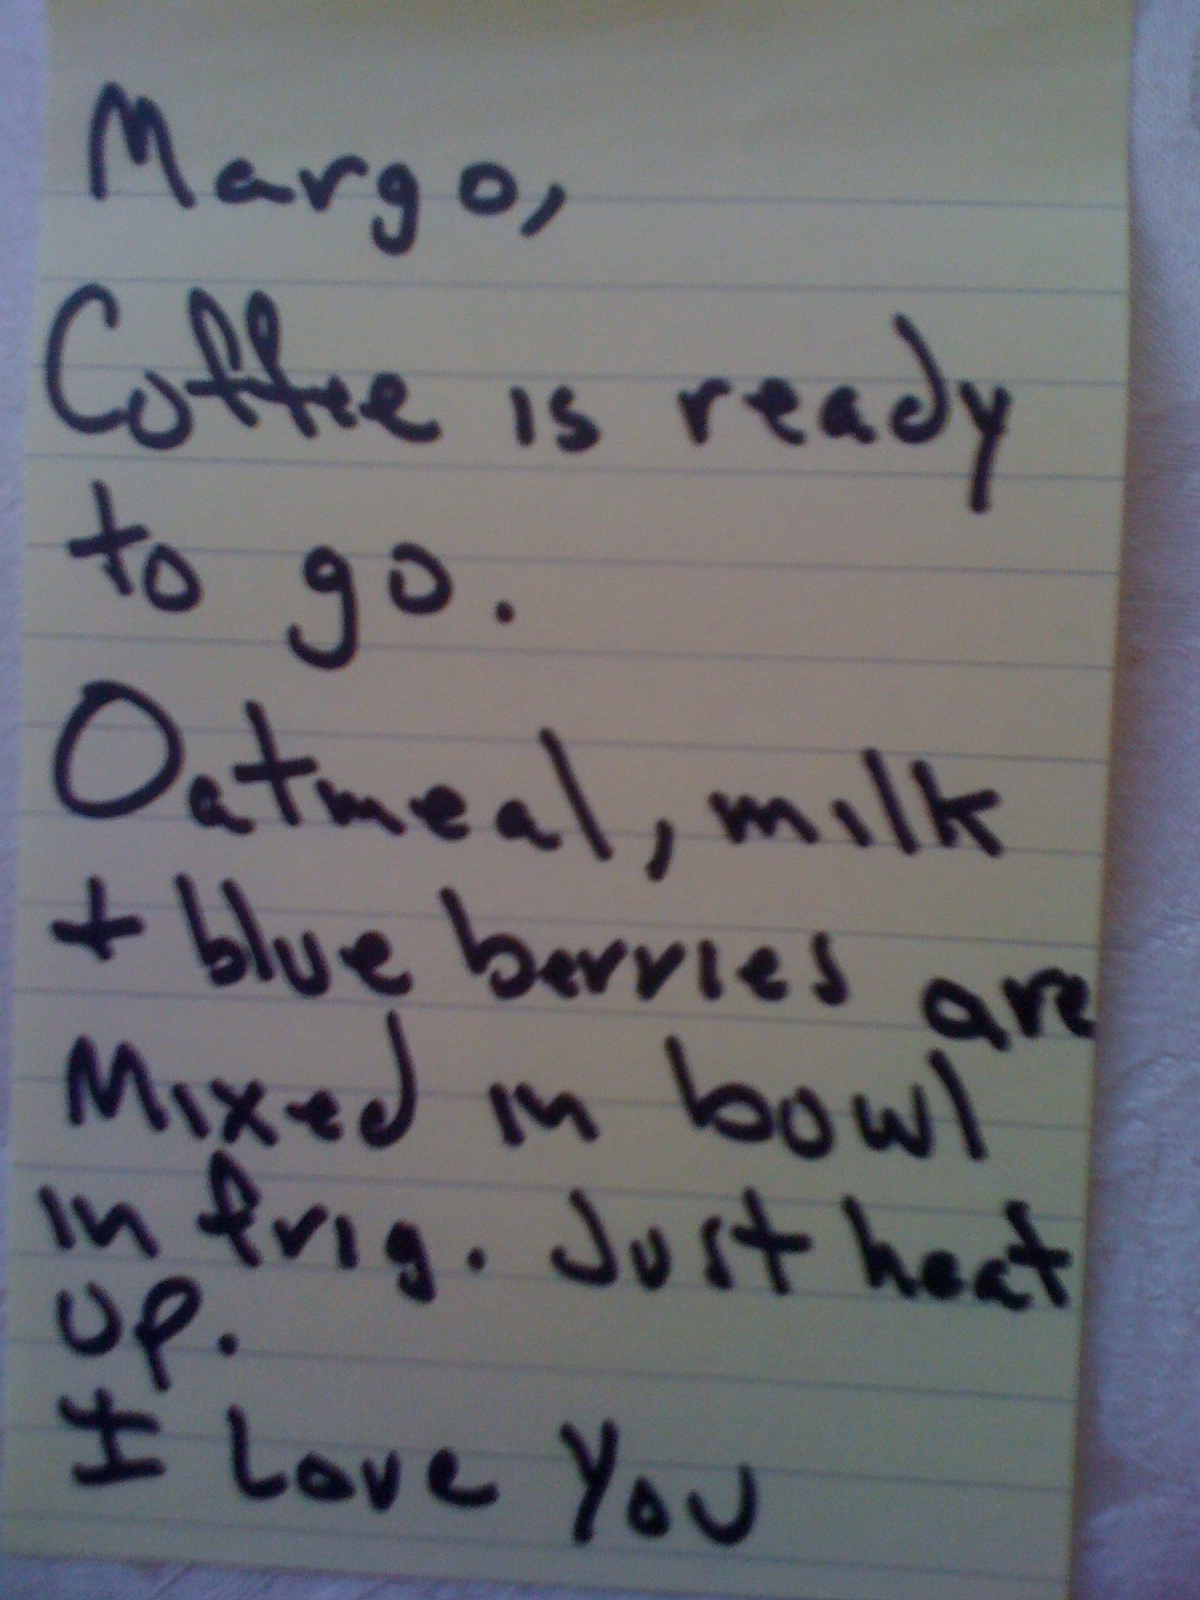 Margo,
Coffee is ready
to go.
Oatmeal, milk
+ blue berries are
Mixed in bowl
in frig. Just heat
up.
I Love You